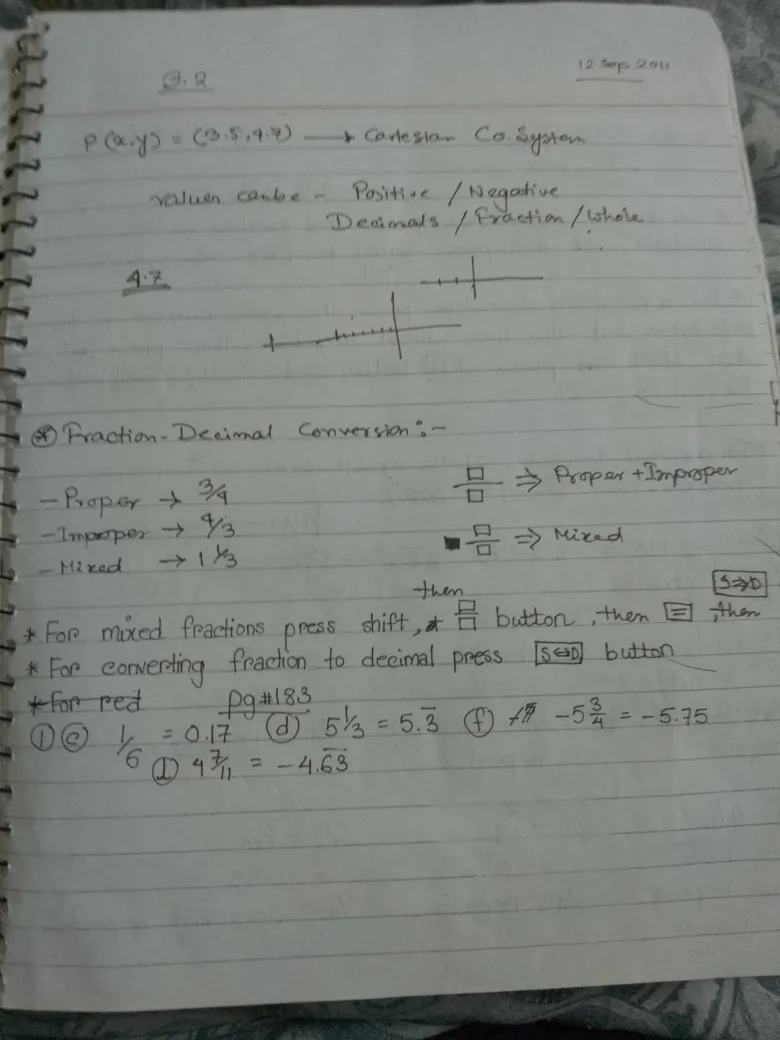 3.2
12 Sep 2011
P(x,y) = (3.5, 4.7) → Cartesian Co. System
values can be - Positive / Negative
Decimals / Fraction / Whole
4.7
* Fraction-Decimal Conversion:-
- Proper → 3/4
□/□ ⇒ Proper + Improper
- Improper → 4/3
- Mixed → 1 1/3
■□/□ ⇒ Mixed
* For mixed fractions press shift, then □/□ button, then =, then S⇔D
* For converting fraction to decimal press S⇔D button
* For red
pg # 183
① ⓒ 1/6 = 0.17 ⓓ 5 1/3 = 5.3̅ ⓕ -5 3/4 = -5.75
4 7/11 = -4.6̅3̅